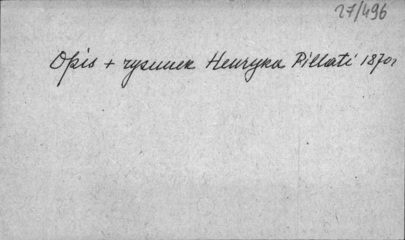 27/496
Opis + rysunek Henryka Pillati 1870r